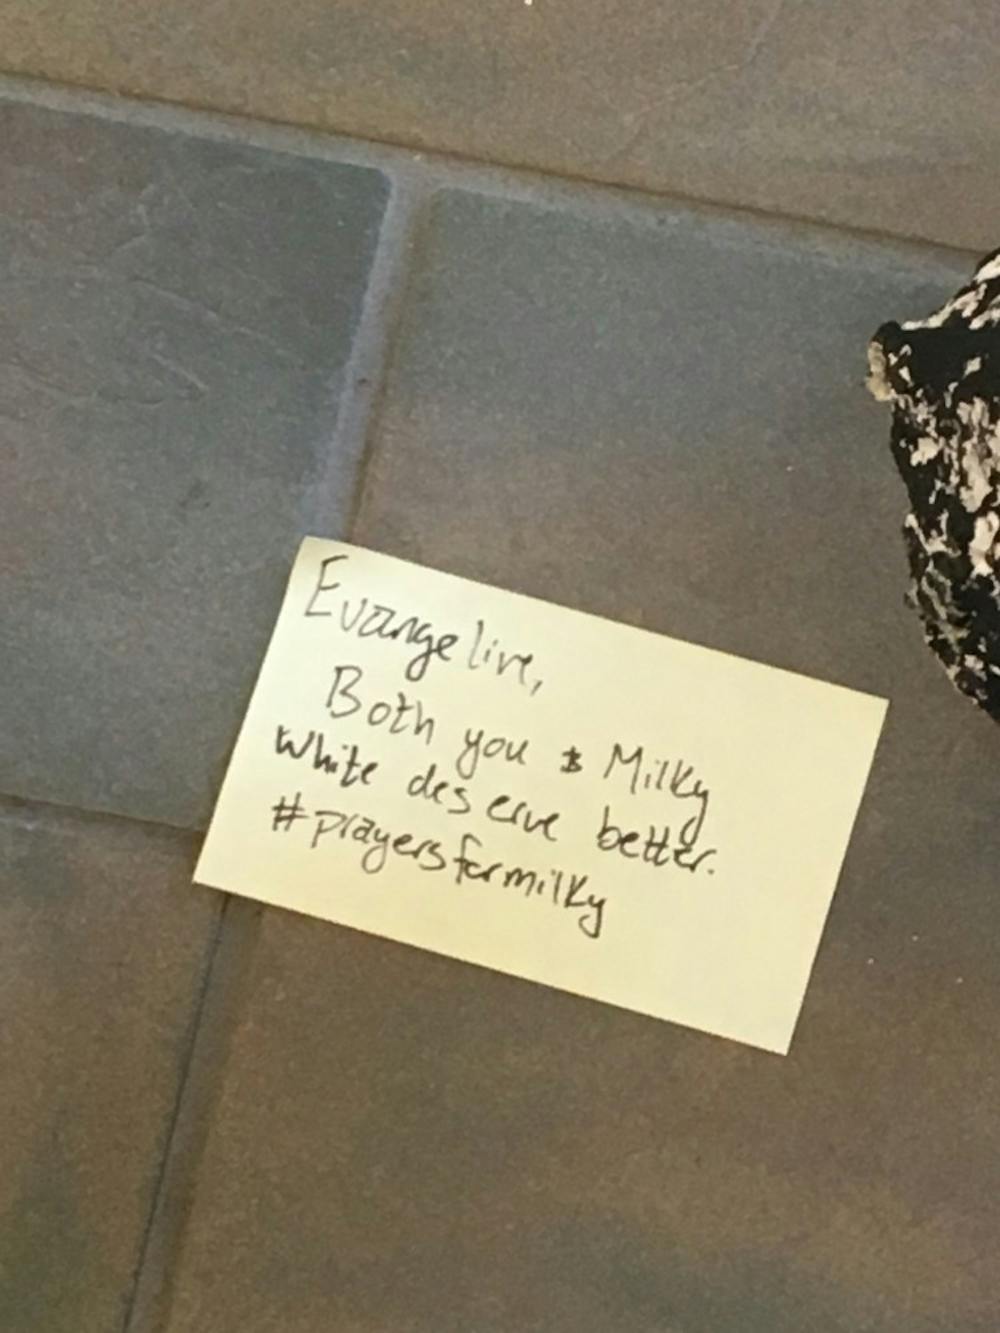 Evangeline,
Both you & Milky
White deserve better.
#prayersformilky